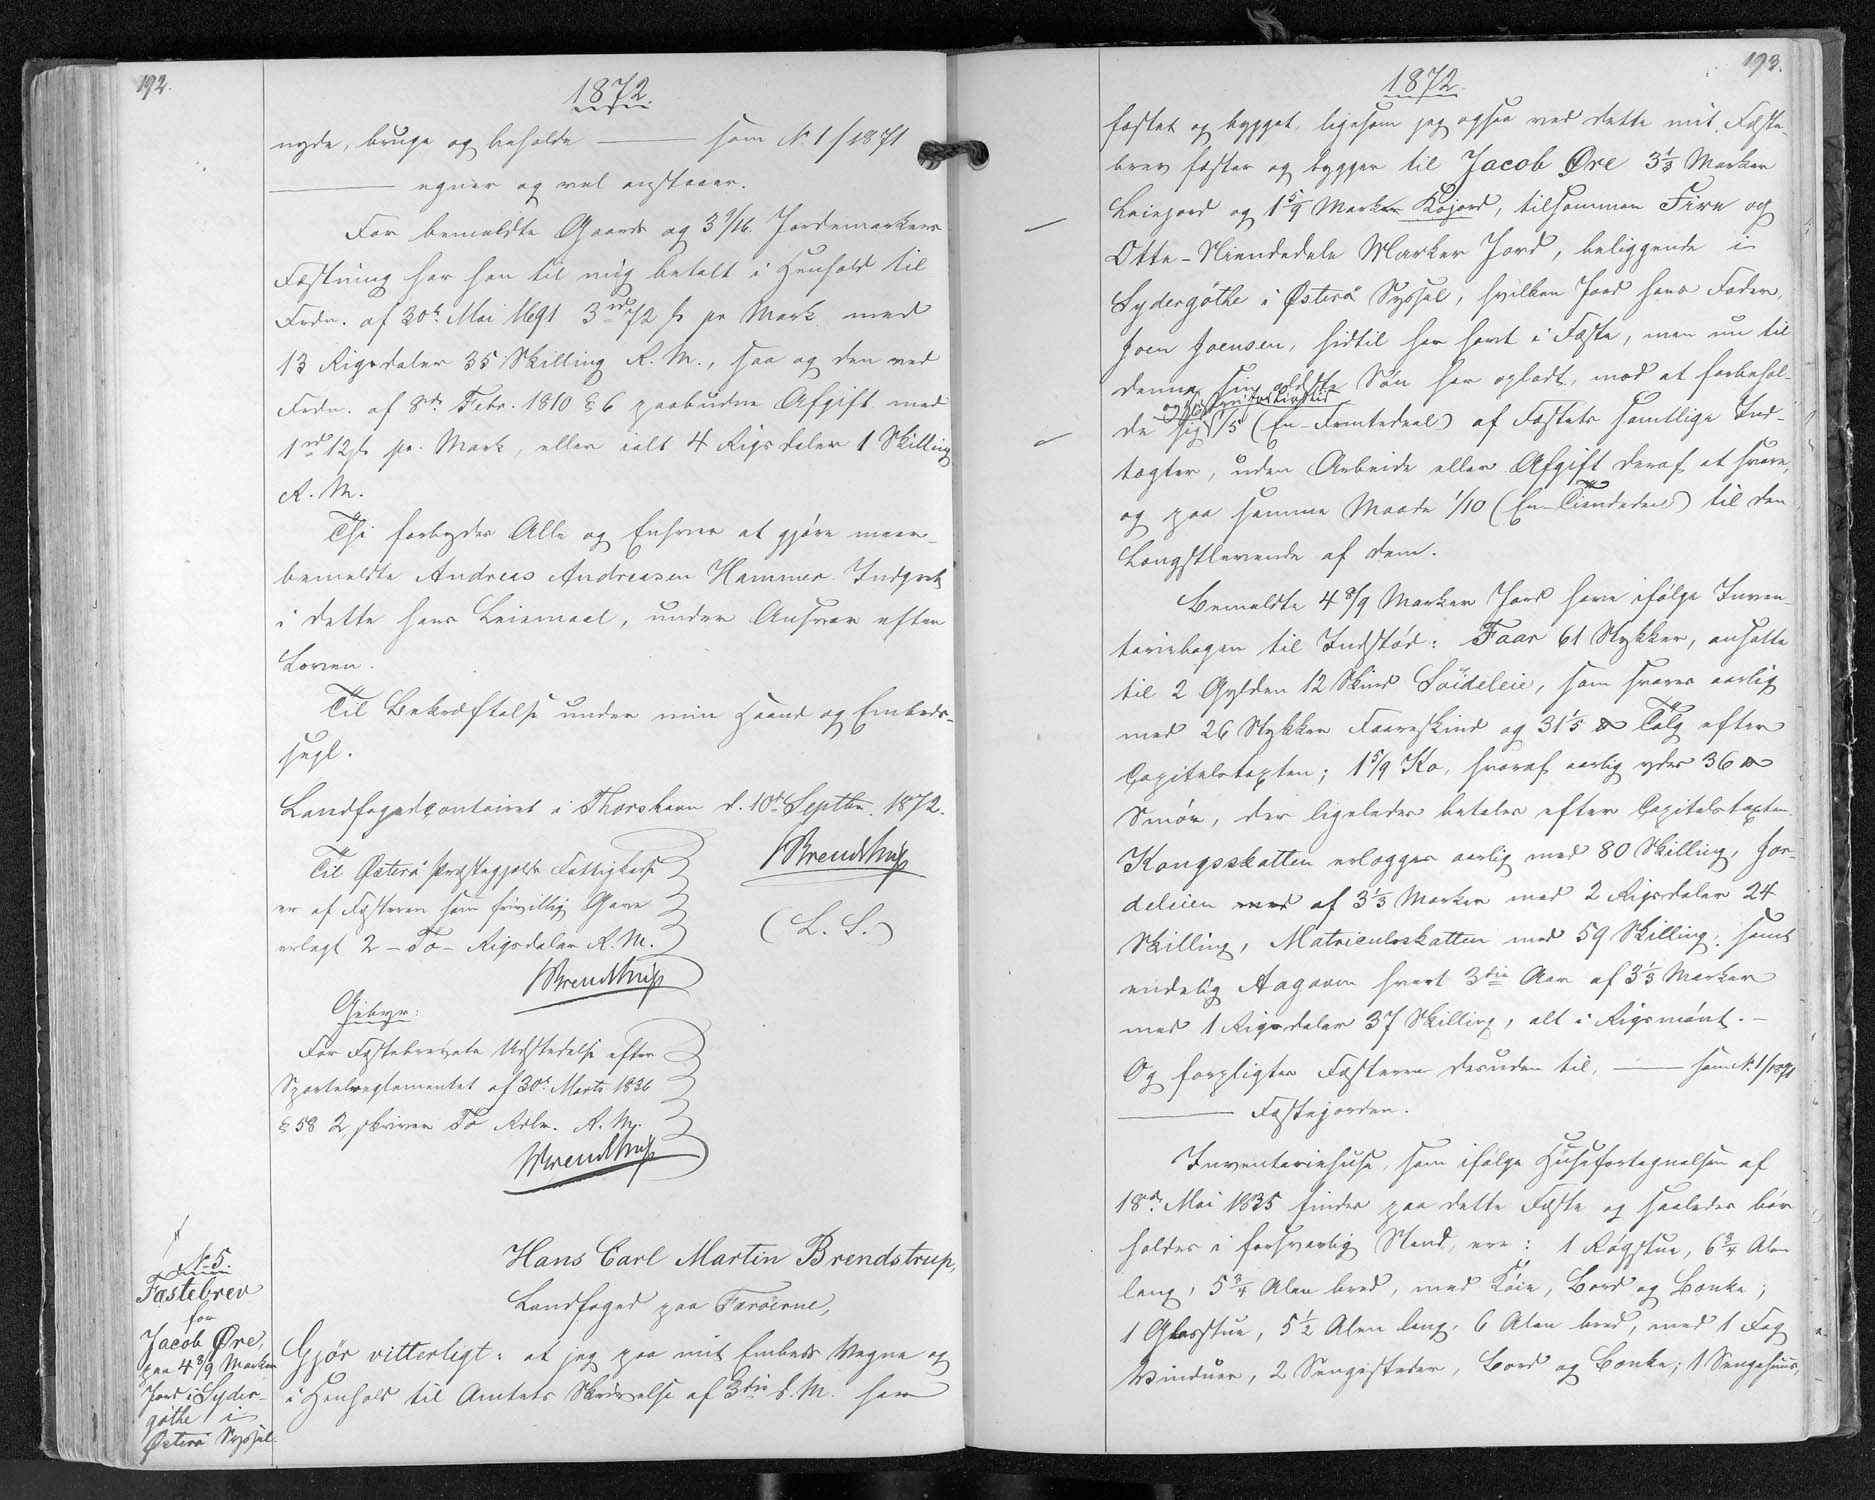 192.
1872.
nyde, bruge og beholde —— som No 1/1871
—— egner og vel anstaaer.
For bemeldte Gaards og 3 9/16 Jordemarkers
Fæstning har han til mig betalt i Henhold til
Frdn. af 30te Mai 1691 3 rd 72 ß pr Mark med
13 Rigsdaler 35 Skilling R. M., saa og den ved
Frdn. af 8de Febr. 1810 § 6 paabudne Afgift med
1 rd 12 ß pr. Mark, eller ialt 4 Rigsdaler 1 Skilling
R. M.
Thi forbydes Alle og Enhver at gjøre meer-
bemeldte Andreas Andreasen Hammer Indgreb
i dette hans Leiemaal, under Ansvar efter
Loven.
Til Bekræftelse under min Haand og Embeds-
segl.
Landfogedcontoiret i Thorshavn d. 10de Septbr. 1872.
Brendstrup
(L. S.)
Til Østerø Præstegjælds Fattigkasse
er af Fæsteren som frivillig Gave
erlagt 2 – To – Rigsdaler R. M.
Brendstrup
Gebyr:
For Fæstebrevets Udstedelse efter
Sportelreglementet af 30te Marts 1836
§ 58 2, skriver To Rdlr. R. M.
Brendstrup
No 5.
Fæstebrev
for
Jacob Øre,
paa 4 8/9 Marker
Jord i Syder-
gøthe i
Østerø Syssel.
Hans Carl Martin Brendstrup,
Landfoged paa Færøerne,
Gjør vitterligt: at jeg paa mit Embeds Vegne og
i Henhold til Amtets Skrivelse af 3die d. M. har
193.
1872.
fæstet og bygget, ligesom jeg ogsaa ved dette mit Fæste-
brev fæster og bygger til Jacob Øre 3 1/3 Marker
Leiejord og 1 5/9 Marker Kojord, tilsammen Fire og
Otte-Niendedele Marker Jord, beliggende i
Sydergøthe i Østerø Syssel, hvilken Jord hans Fader,
Joen Joensen, hidtil har havt i Fæste, men nu til
denne sin ældste Søn har opladt, mod at forbehol-
de sig 1/5 (En-Femtedeel) af Fæstets samtlige Ind-
tægter, uden Arbeide eller Afgift deraf at svare,
og paa samme Maade 1/10 (En-Tiendedeel) til den
Længstlevende af dem.
Bemeldte 4 8/9 Marker Jord have ifølge Inven-
tariebogen til Indstød: Faar 61 Stykker, ansatte
til 2 Gylden 12 Skind Søideleie, som svares aarlig
med 26 Stykker Faareskind og 31 1/5 ℔ Talg efter
Capitelstaxten; 1 5/9 Ko, hvoraf aarlig ydes 36 ℔
Smør, der ligeledes betales efter Capitelstaxten.
Kongsskatten erlægges aarlig med 80 Skilling, Jor-
deleien med af 3 1/3 Marker med 2 Rigsdaler 24
Skilling, Matriculskatten med 59 Skilling, samt
endelig Aagaven hvert 3die Aar af 3 1/3 Marker
med 1 Rigsdaler 37 Skilling, alt i Rigsmønt. –
Og forpligtes Fæsteren desuden til, —— som No 1/1871
—— Fæstejorden.
Inventariehuse, som ifølge Husefortegnelsen af
18de Mai 1835 findes paa dette Fæste og saaledes bør
holdes i forsvarlig Stand, ere: 1 Røgstue, 6 3/4 Alen
lang, 5 3/4 Alen bred, med Køie, Bord og Bænke;
1 Glasstue, 5 1/2 Alen lang, 6 Alen bred, med 1 Fag
Vinduer, 2 Sengesteder, Bord og Bænke; 1 Sengehuus,